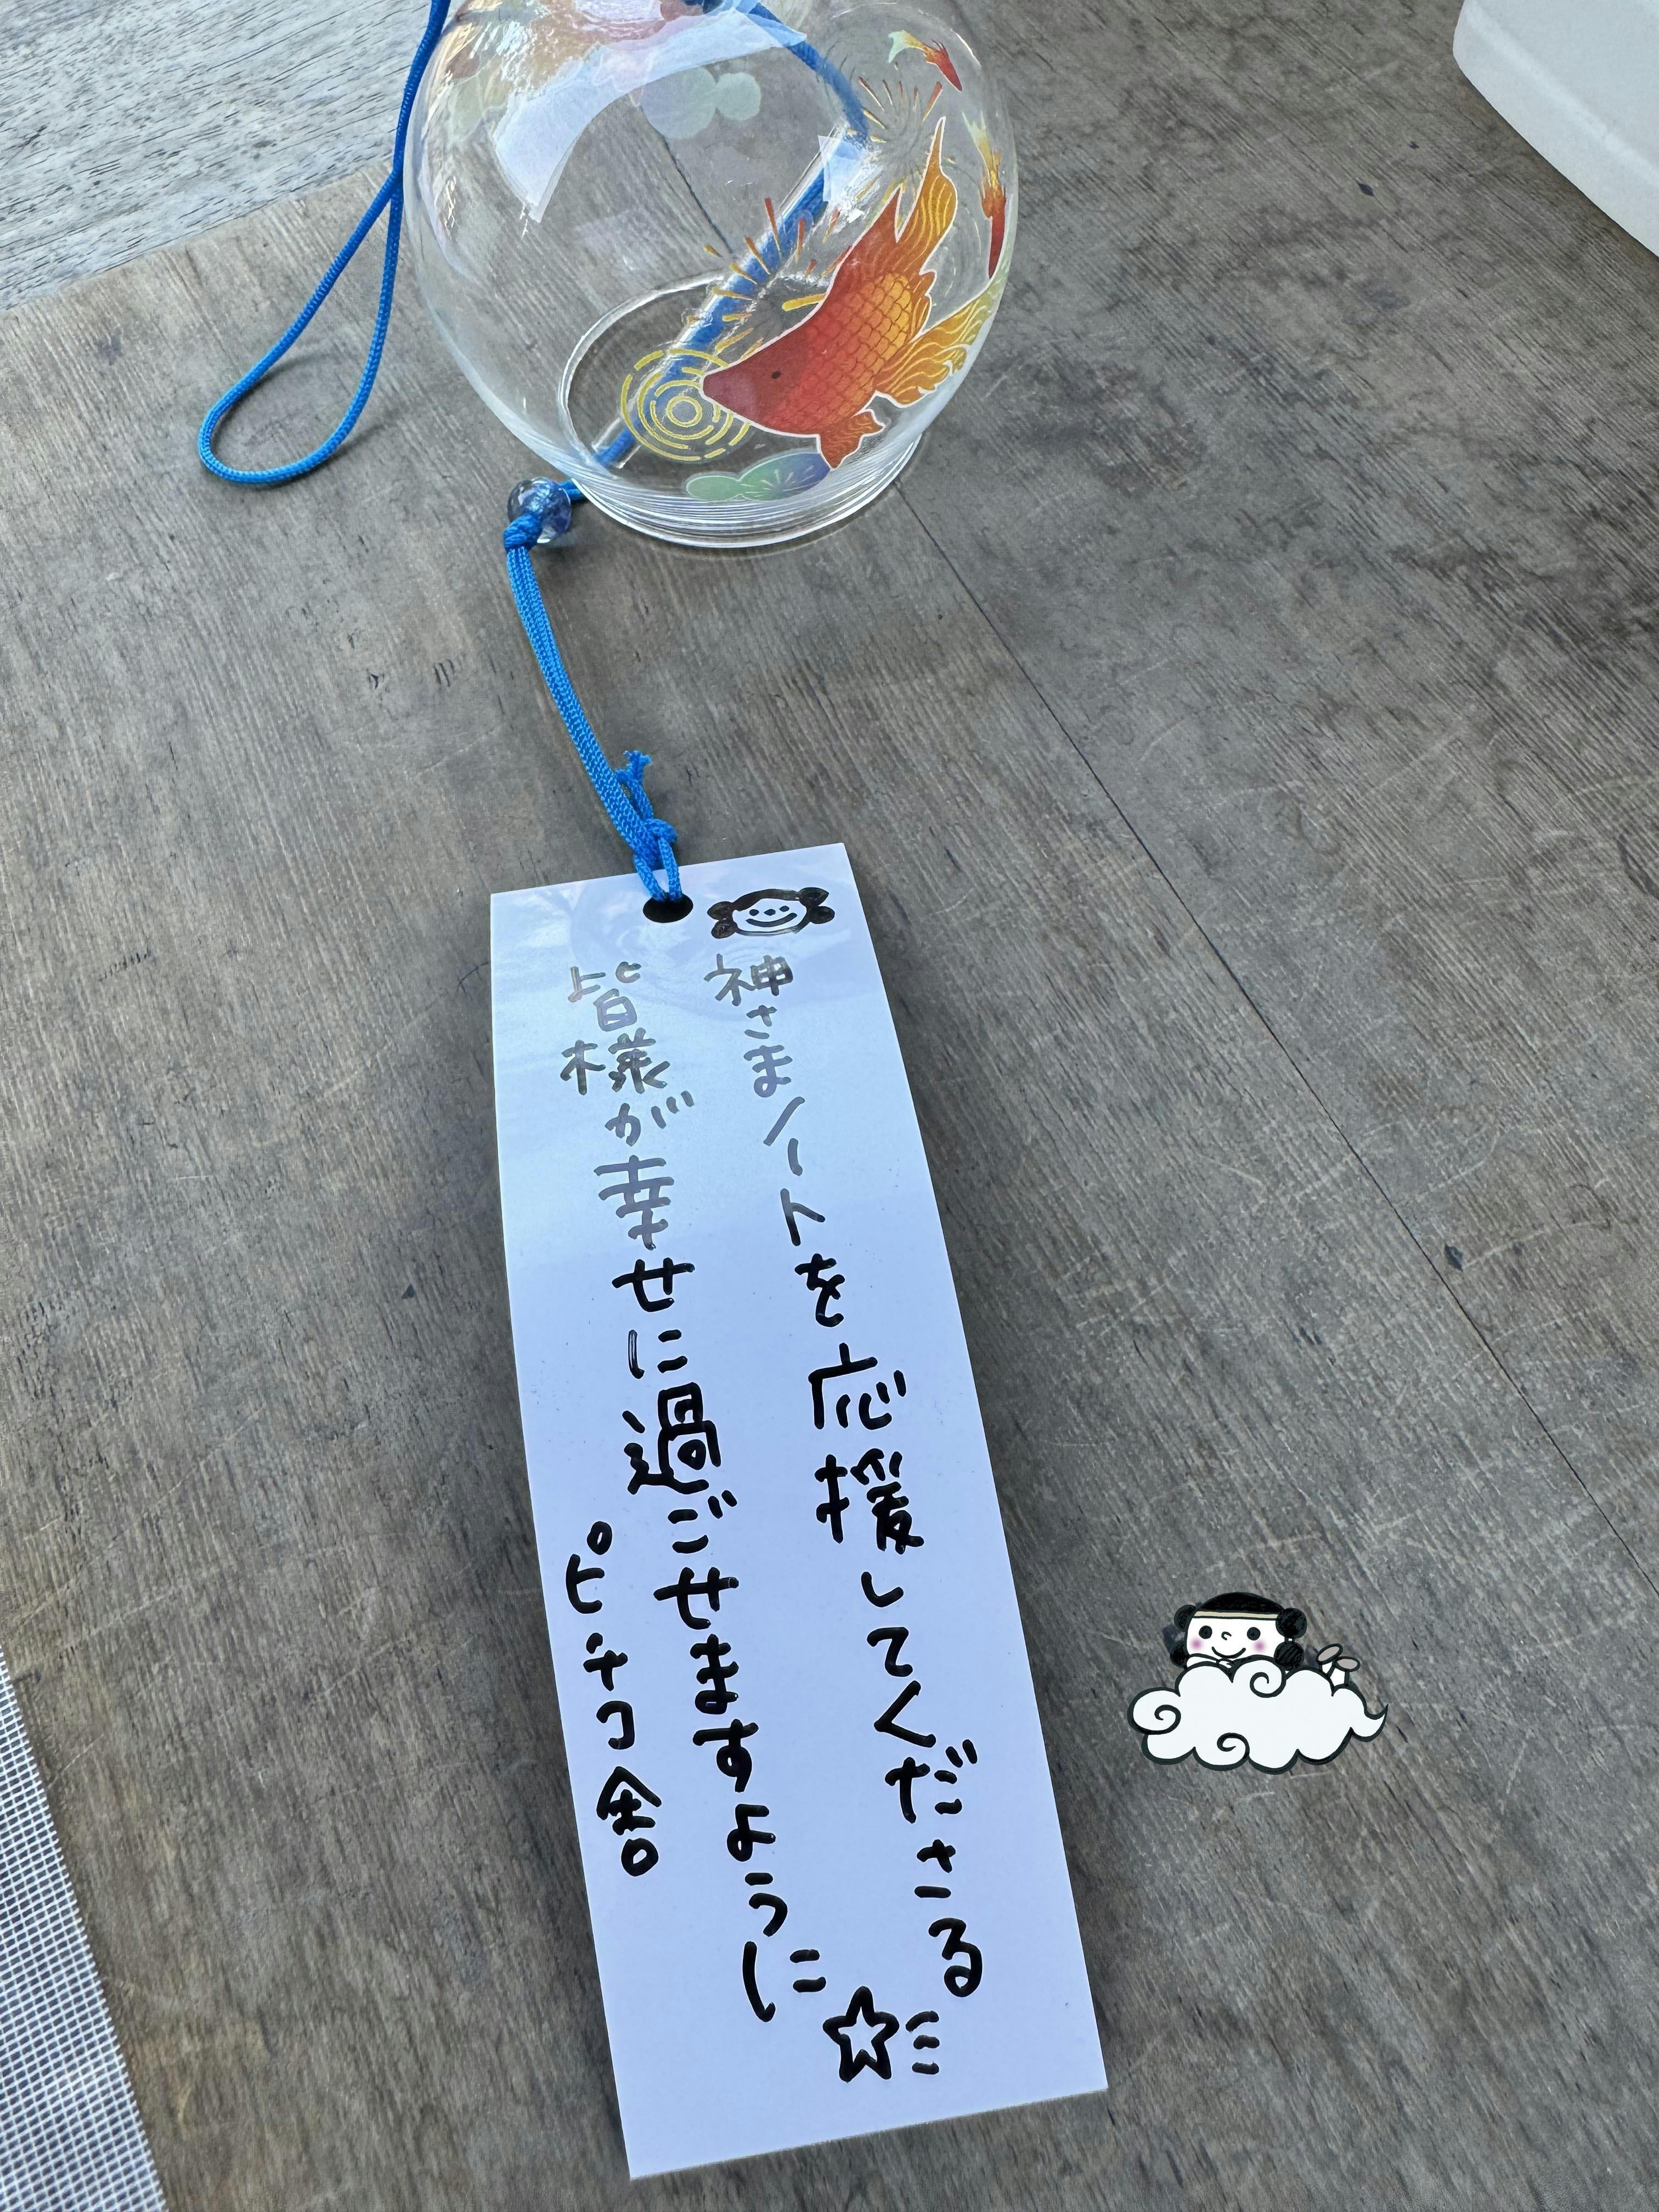 神さまノートを応援してくださる
皆様が幸せに過ごせますように
ピチコ舎